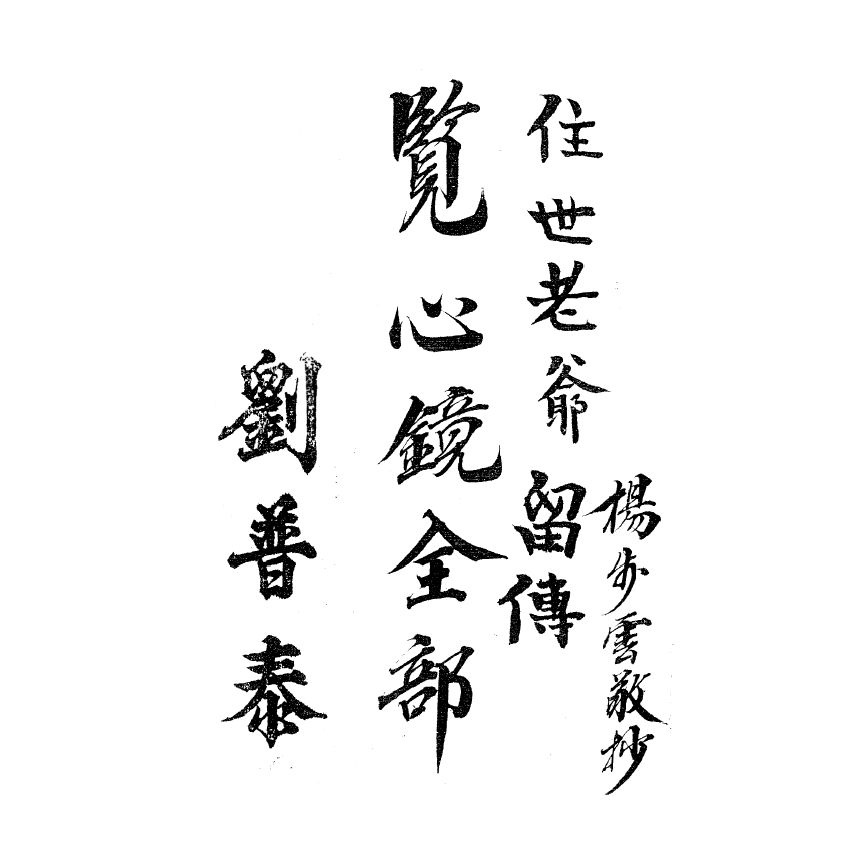 楊步雲敬抄
住世老爺留傳
覽心鏡全部
劉普泰